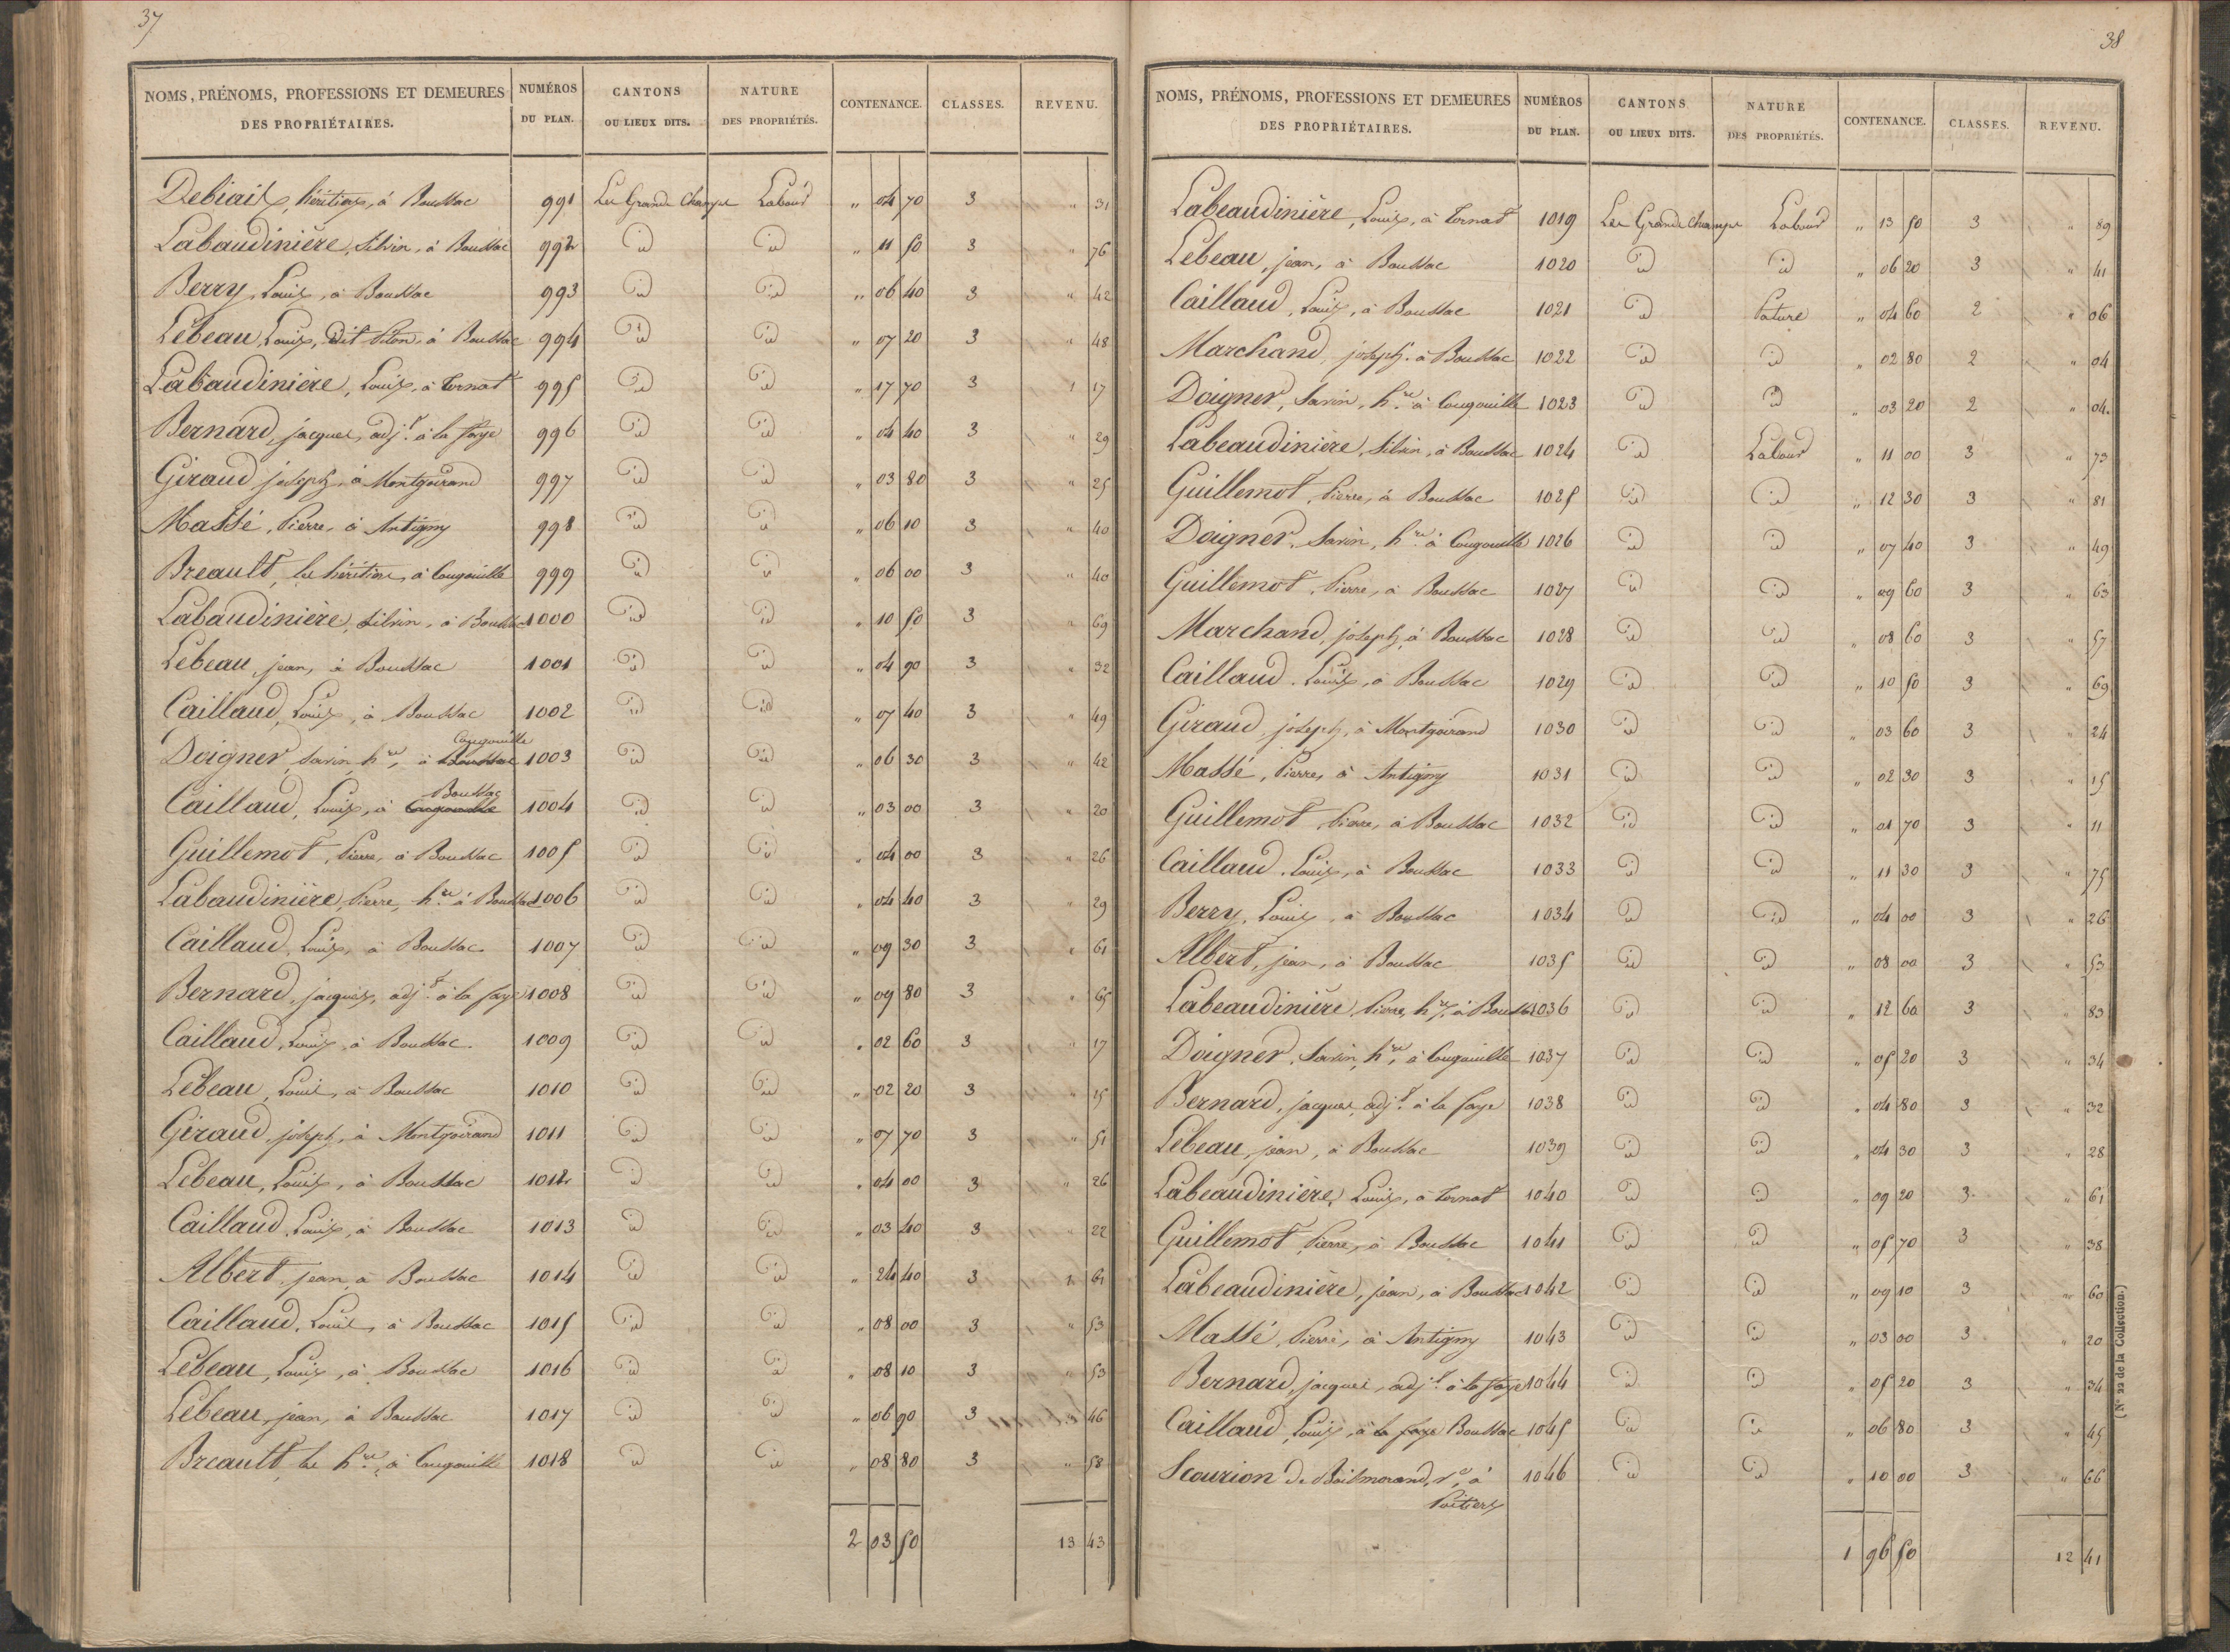 37
NOMS, PRÉNOMS, PROFESSIONS ET DEMEURES DES PROPRIÉTAIRES. NUMÉROS DU PLAN. CANTONS OU LIEUX DITS. NATURE DES PROPRIÉTÉS. CONTENANCE. CLASSES. REVENU.
Debiais, héritiers, à Boussac 991 Les Grands Champs Labour " 04 70 3 " 31
Labaudinière, Silvin, à Boussac 992 id id " 11 50 3 " 76
Berry, Louis, à Boussac 993 id id " 06 40 3 " 42
Lebeau, Louis, dit Piton, à Boussac 994 id id " 07 20 3 " 48
Labaudinière, Louis, à Tornat 995 id id " 17 70 3 1 17
Bernard, jacques, adjt à la faye 996 id id " 04 40 3 " 29
Giraud, joseph, à Montgoirand 997 id id " 03 80 3 " 25
Massé, Pierre, à Antigny 998 id id " 06 10 3 " 40
Breault, les héritiers, à Cougouille 999 id id " 06 00 3 " 40
Labaudinière, Silvin, à Boussac 1000 id id " 10 50 3 " 69
Lebeau, jean, à Boussac 1001 id id " 04 90 3 " 32
Caillaud, Louis, à Boussac 1002 id id " 07 40 3 " 49
Cougouille
Doigner, Savin, hre, à Boussac 1003 id id " 06 30 3 " 42
Boussac
Caillaud, Louis, à Cougouille 1004 id id " 03 00 3 " 20
Guillemot, Pierre, à Boussac 1005 id id " 04 00 3 " 26
Labaudinière, Pierre, hre à Boussac 1006 id id " 04 40 3 " 29
Caillaud, Louis, à Boussac 1007 id id " 09 30 3 " 61
Bernard, jacques, adjt à la faye 1008 id id " 09 80 3 " 65
Caillaud, Louis, à Boussac. 1009 id id " 02 60 3 " 17
Lebeau, Louis, à Boussac 1010 id id " 02 20 3 " 15
Giraud, joseph, à Montgoirand 1011 id id " 07 70 3 " 51
Lebeau, Louis, à Boussac 1012 id id " 04 00 3 " 26
Caillaud, Louis, à Boussac 1013 id id " 03 40 3 " 22
Albert, jean, à Boussac 1014 id id " 24 40 3 1 61
Caillaud, Louis, à Boussac 1015 id id " 08 00 3 " 53
Lebeau, Louis, à Boussac 1016 id id " 08 10 3 " 53
Lebeau, jean, à Boussac 1017 id id " 06 90 3 " 46
Breault, les hre, à Cougouille 1018 id id " 08 80 3 " 58
2 03 50 13 43
38
NOMS, PRÉNOMS, PROFESSIONS ET DEMEURES DES PROPRIÉTAIRES. NUMÉROS DU PLAN. CANTONS OU LIEUX DITS. NATURE DES PROPRIÉTÉS. CONTENANCE. CLASSES. REVENU.
Labeaudinière, Louis, à Tornat 1019 Les Grands Champs Labour " 13 50 3 " 89
Lebeau, jean, à Boussac 1020 id id " 06 20 3 " 41
Caillaud, Louis, à Boussac 1021 id Pature " 04 60 2 " 06
Marchand, joseph, à Boussac 1022 id id " 02 80 2 " 04
Doigner, Savin, hre à Cougouille 1023 id id " 03 20 2 " 04
Labeaudinière, Silvin, à Boussac 1024 id Labour " 11 00 3 " 73
Guillemot, Pierre, à Boussac 1025 id id " 12 30 3 " 81
Doigner, Savin, hre à Cougouille 1026 id id " 07 40 3 " 49
Guillemot, Pierre, à Boussac 1027 id id " 09 60 3 " 63
Marchand, joseph, à Boussac 1028 id id " 08 60 3 " 57
Caillaud, Louis, à Boussac 1029 id id " 10 50 3 " 69
Giraud, joseph, à Montgoirand 1030 id id " 03 60 3 " 24
Massé, Pierre, à Antigny 1031 id id " 02 30 3 " 15
Guillemot, Pierre, à Boussac 1032 id id " 01 70 3 " 11
Caillaud, Louis, à Boussac 1033 id id " 11 30 3 " 75
Berry, Louis, à Boussac 1034 id id " 04 00 3 " 26
Albert, jean, à Boussac 1035 id id " 08 00 3 " 53
Labeaudinière, Pierre, hre, à Boussac 1036 id id " 12 60 3 " 83
Doigner, Savin, hre, à Cougouille 1037 id id " 05 20 3 " 34
Bernard, jacques, adjt à la faye 1038 id id " 04 80 3 " 32
Lebeau, jean, à Boussac 1039 id id " 04 30 3 " 28
Labeaudinière, Louis, à Tornat 1040 id id " 09 20 3 " 61
Guillemot, Pierre, à Boussac 1041 id id " 05 70 3 " 38
Labeaudinière, jean, à Boussac 1042 id id " 09 10 3 " 60
Massé, Pierre, à Antigny 1043 id id " 03 00 3 " 20
Bernard, jacques, adjt à la faye 1044 id id " 05 20 3 " 34
Caillaud, Louis, à la faye Boussac 1045 id id " 06 80 3 " 45
Scourion de Boismorand, ve, à 1046 id id " 10 00 3 " 66
Poitiers
1 96 50 12 41
(N° 22 de la Collection.)